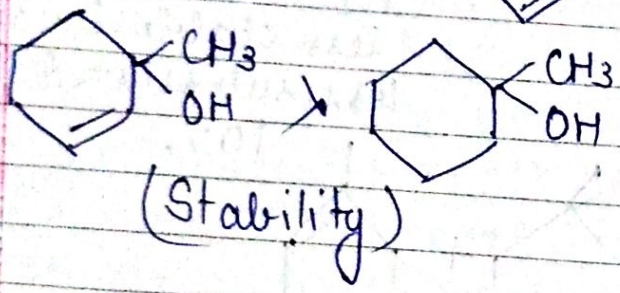 CH3
OH > CH3
OH
(Stability)